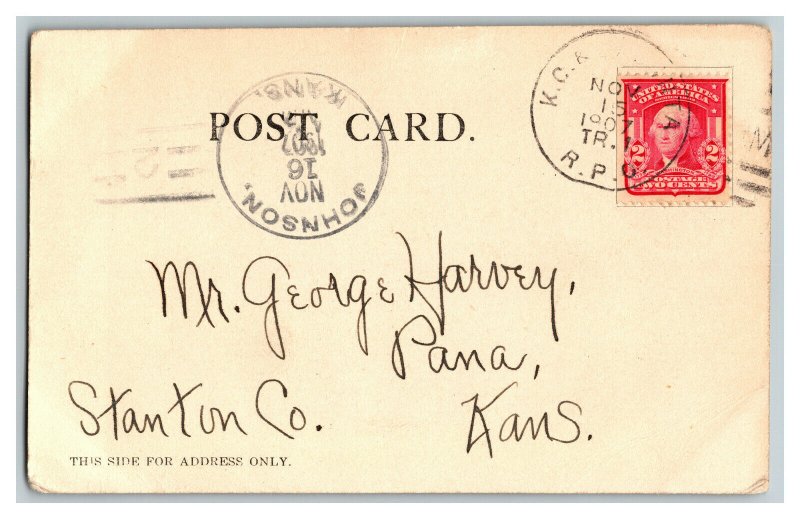 POST CARD.
JOHNSON, KANS.
NOV
16
1907
K.C.
NOV
15
1907
TR. 1
R.P.O.
UNITED STATES
OF AMERICA
2 2
POSTAGE
TWO CENTS
Mr. George Harvey,
Pana,
Stanton Co. Kans.
THIS SIDE FOR ADDRESS ONLY.